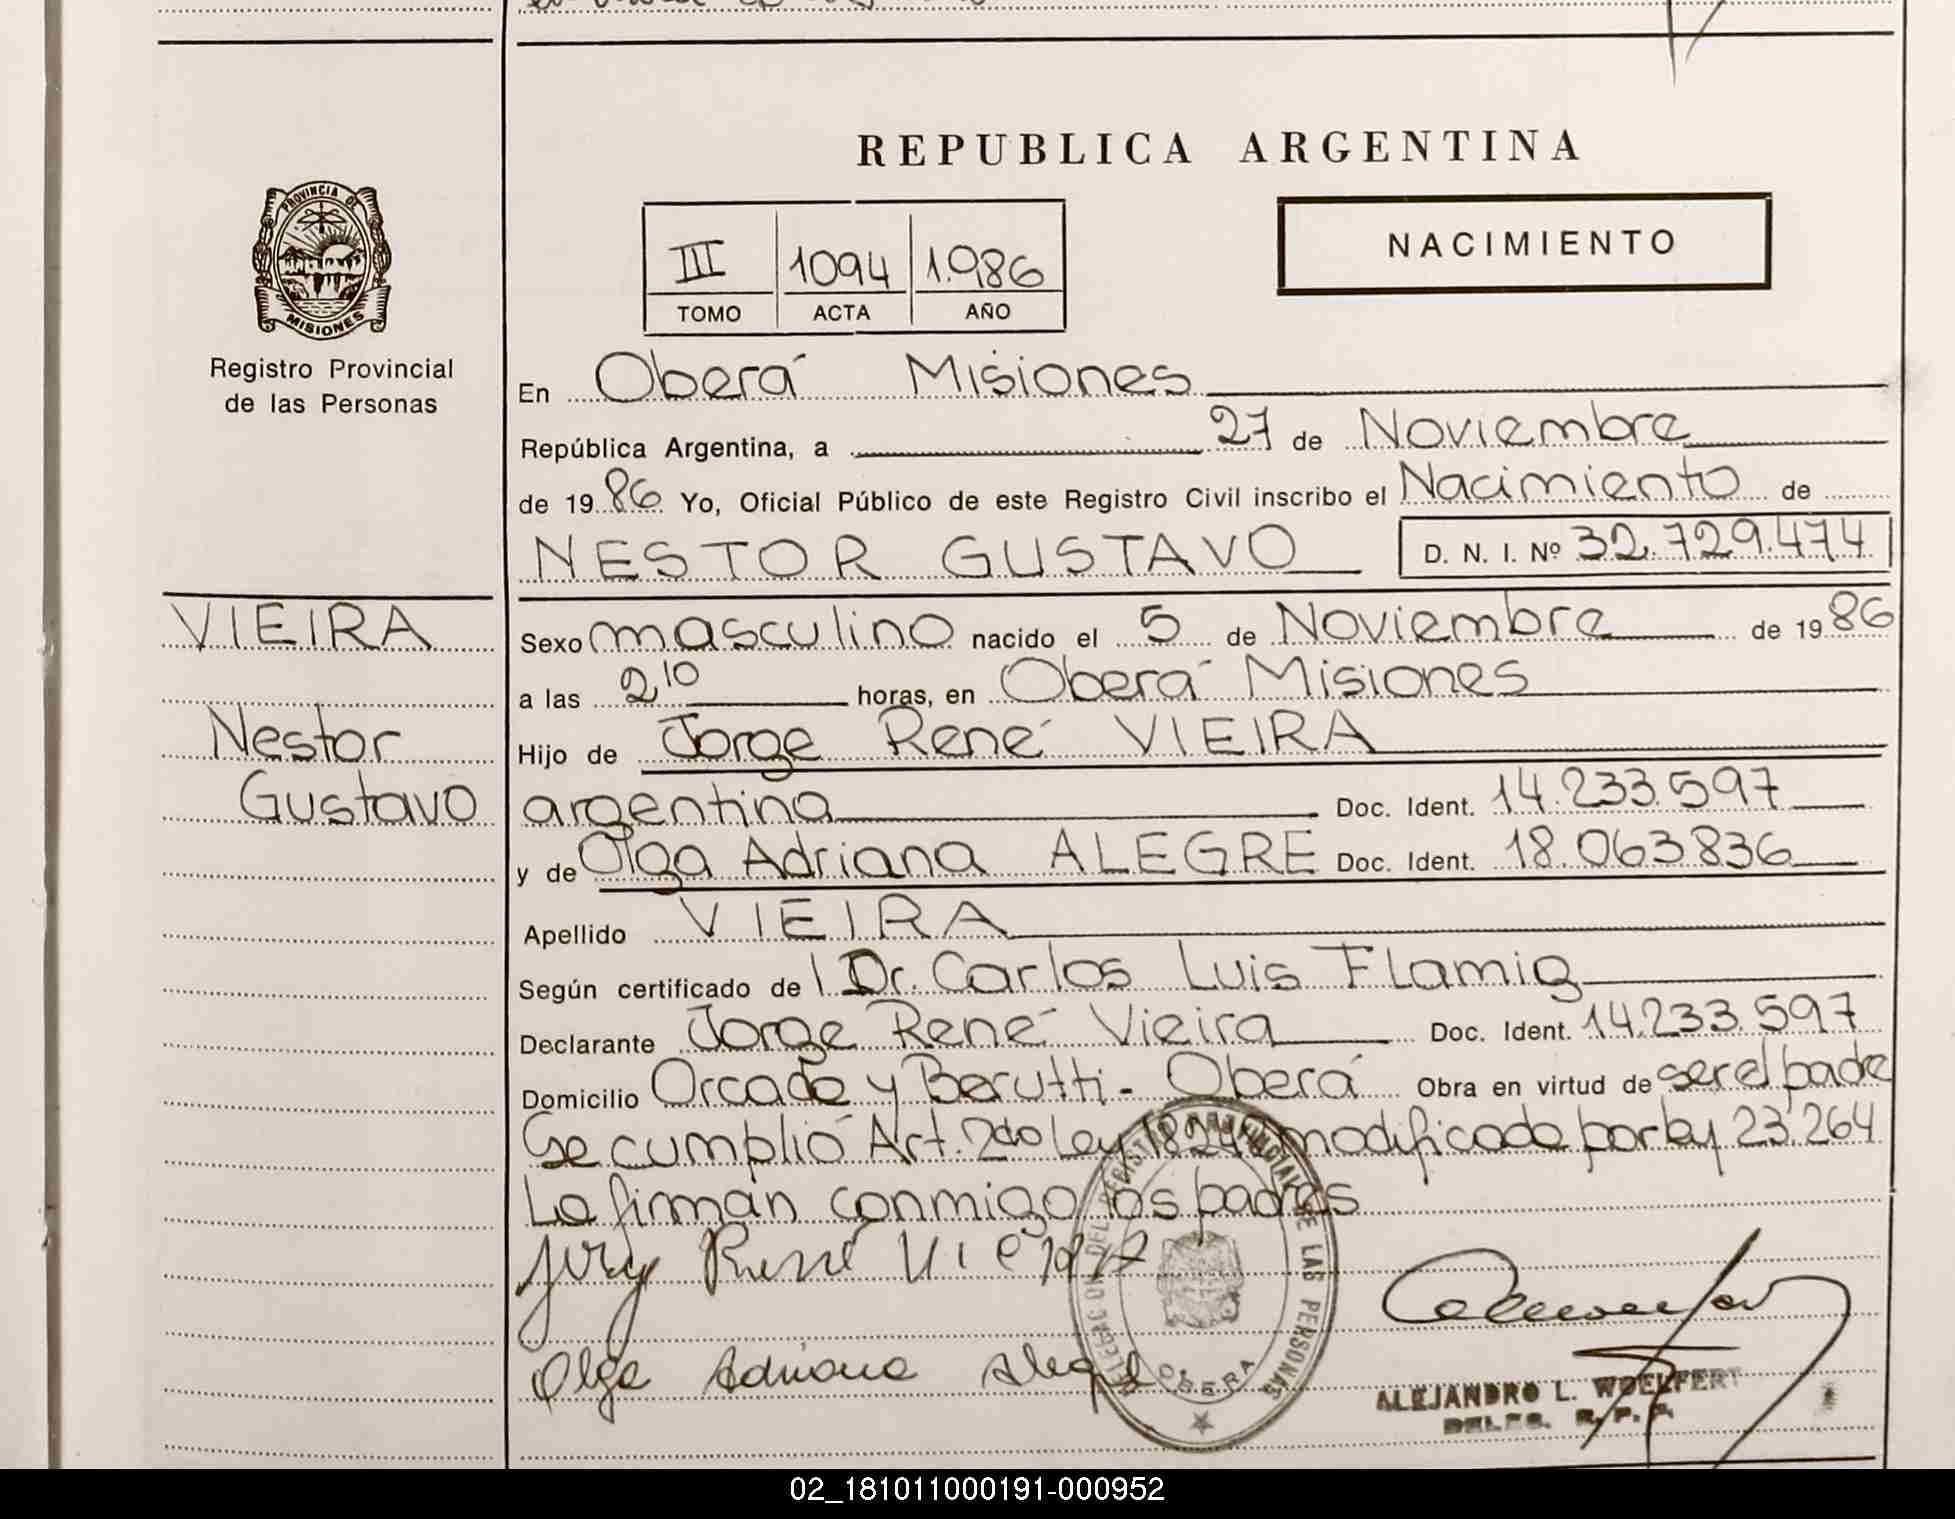 REPUBLICA ARGENTINA
PROVINCIA DE
MISIONES
Registro Provincial
de las Personas
III 1094 1.986
TOMO ACTA AÑO
NACIMIENTO
En Oberá Misiones
República Argentina, a 27 de Noviembre
de 1986 Yo, Oficial Público de este Registro Civil inscribo el Nacimiento de
NESTOR GUSTAVO D. N. I. Nº 32.729.474
VIEIRA
Nestor
Gustavo
Sexo masculino nacido el 5 de Noviembre de 1986
a las 2,10 horas, en Oberá Misiones
Hijo de Jorge René VIEIRA
argentina Doc. Ident. 14.233.597
y de Olga Adriana ALEGRE Doc. Ident. 18.063.836
Apellido VIEIRA
Según certificado de l Dr. Carlos Luis Flamig
Declarante Jorge René Vieira Doc. Ident. 14.233.597
Domicilio y Berutti - Oberá Obra en virtud de ser el padre
Se cumplió Art. 2do Ley modificado por ley 23.264
La firman conmigo los padres
René Vieira
Olga Adriana Alegre
REGISTRO PROVINCIAL DE LAS PERSONAS
OBERA
ALEJANDRO L. WOELFERT
DELEG. R. P. P.
02_181011000191-000952